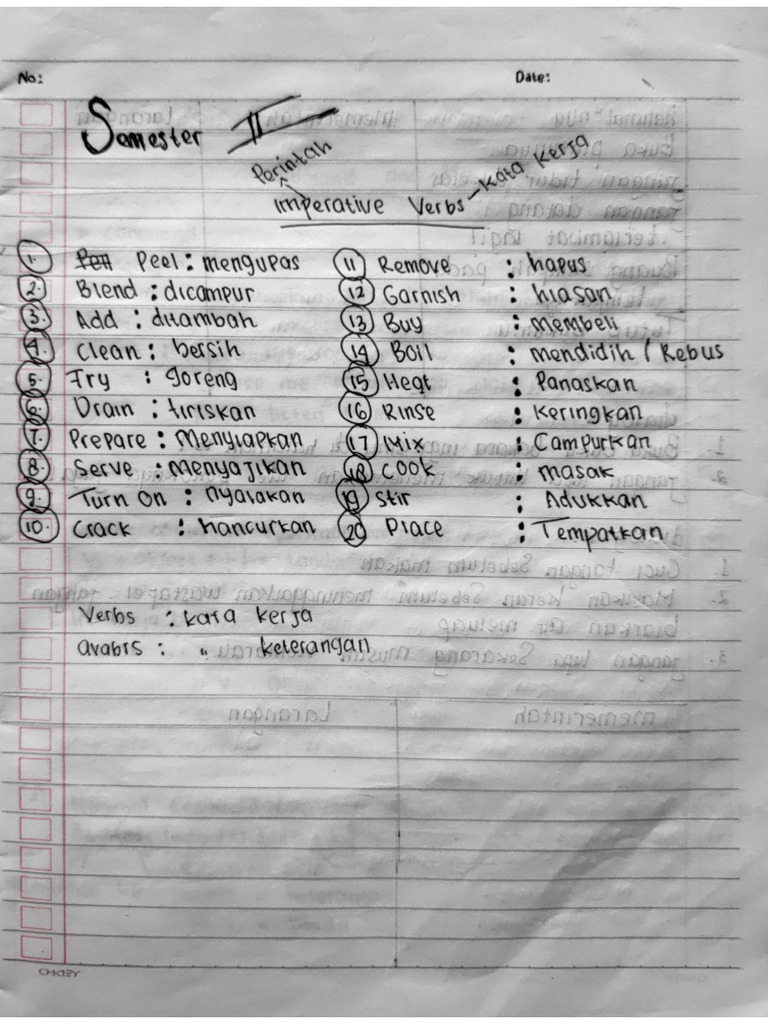 No:
Date:
Semester II
Perintah
Kata Kerja
imperative Verbs
1. Peel : mengupas
2. Blend : dicampur
3. Add : ditambah
4. Clean : bersih
5. Fry : goreng
6. Drain : tiriskan
7. Prepare : Menyiapkan
8. Serve : Menyajikan
9. Turn on : nyalakan
10. Crack : hancurkan
11 Remove : hapus
12 Garnish : hiasan
13 Buy : Membeli
14 Boil : mendidih / Rebus
15 Heat : Panaskan
16 Rinse : Keringkan
17 Mix : Campurkan
18 Cook : masak
19 Stir : Adukkan
20 Place : Tempatkan
Verbs : kata kerja
avabrs : " keterangan